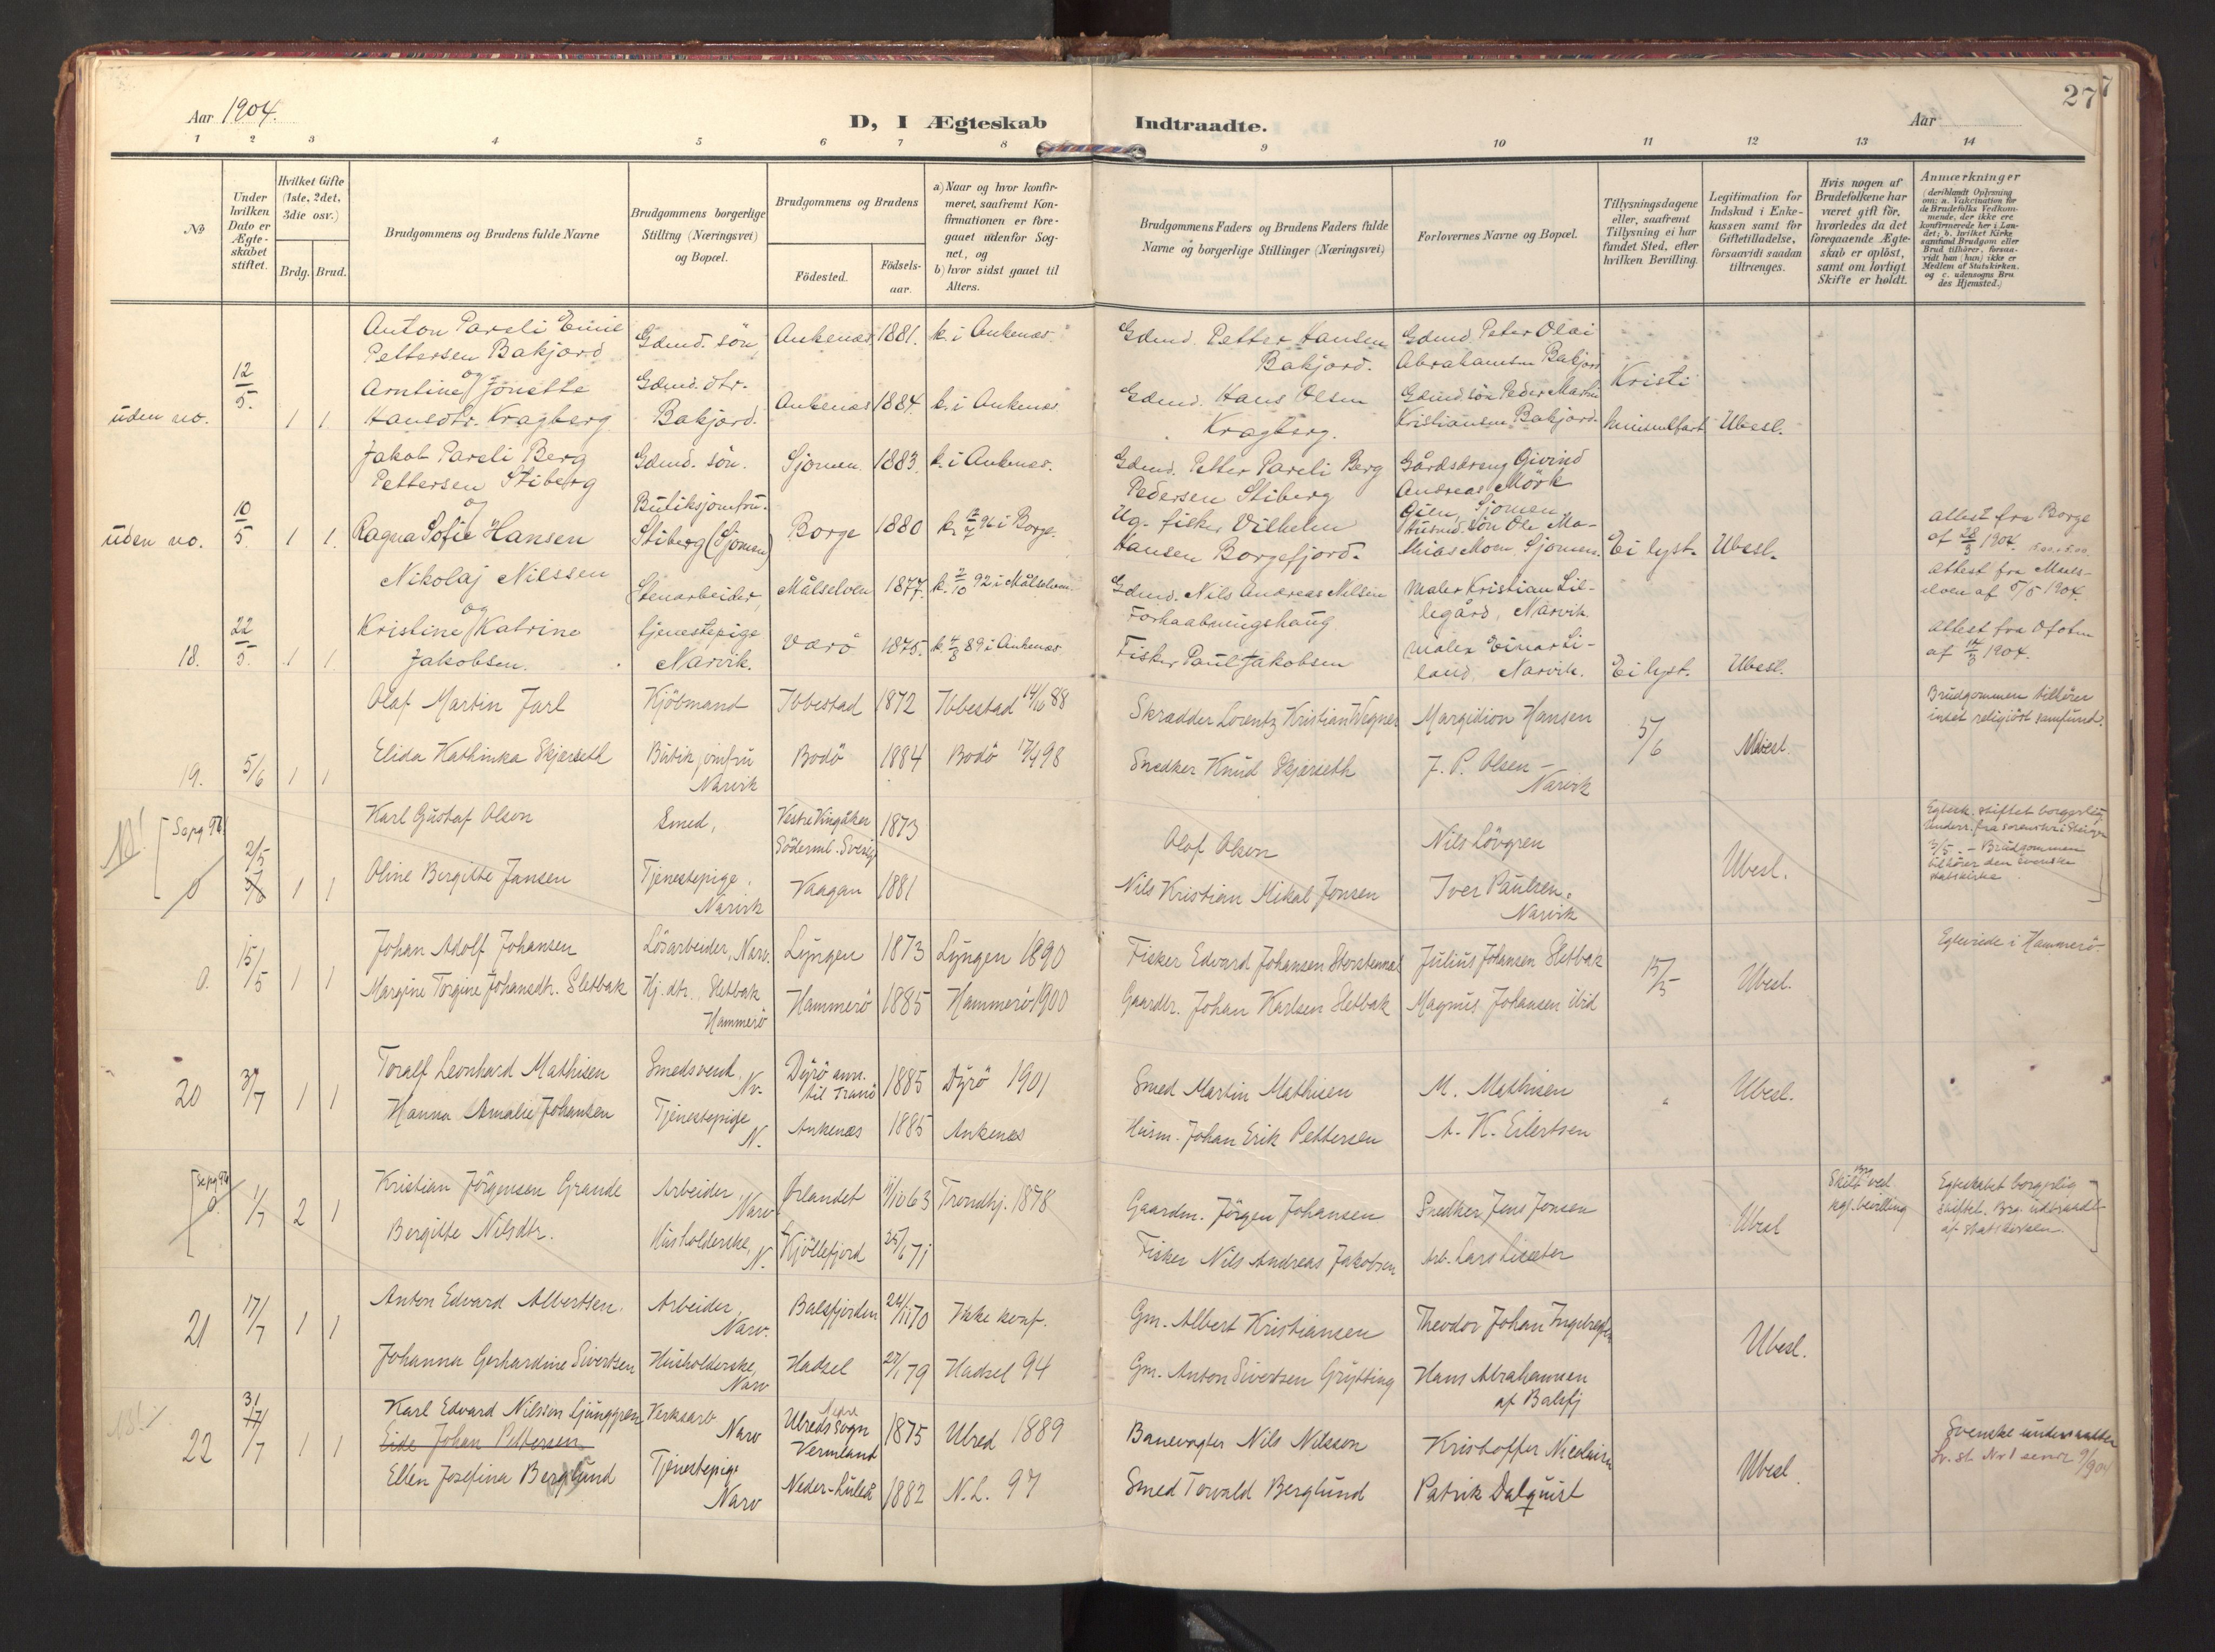 Aar 1904.
D, I Ægteskab Indtraadte.
Aar
27
1 2 3 4 5 6 7 8 9 10 11 12 13 14
No
Under hvilken Dato er Ægteskabet stiftet.
Hvilket Gifte (1ste, 2det, 3die osv.)
Brdg. Brud.
Brudgommens og Brudens fulde Navne
Brudgommens borgerlige Stilling (Næringsvei) og Bopæl.
Brudgommens og Brudens
Födested.
Födselsaar.
a) Naar og hvor konfirmeret, saafremt Konfirmationen er foregaaet udenfor Sognet, og
b) hvor sidst gaaet til Alters.
Brudgommens Faders og Brudens Faders fulde Navne og borgerlige Stillinger (Næringsvei)
Forlovernes Navne og Bopæl.
Tillysningsdagene eller, saafremt Tillysning ei har fundet Sted, efter hvilken Bevilling.
Legitimation for Indskud i Enkekassen samt for Giftetilladelse, forsaavidt saadan tiltrænges.
Hvis nogen af Brudefolkene har været gift før, hvorledes da det foregaaende Ægteskab er oplöst, samt om lovligt Skifte er holdt.
Anmærkninger
(deriblandt Oplysning om: a. Vakcination for de Brudefolks Vedkommende, der ikke ere konfirmerede her i Landet; b. hvilket Kirkesamfund Brudgom eller Brud tilhører, forsaavidt han (hun) ikke er Medlem af Statskirken, og c. udensogns Brudes Hjemsted.)
uden no. 12/5. 1 1
Anton Pareli Emil
Pettersen Bakjord
og
Arntine Jonette
Hansdtr. Kragberg
Gdmd. sön
Gdmd. dtr.
Bakjord.
Ankenæs 1881. k. i Ankenæs.
Ankenæs 1884. k. i Ankenæs.
Gdmd. Petter Hansen
Bakjord.
Gdmd. Hans Olsen
Kragberg.
Gdmd. Peter Olai
Abrahamsen Bakjord
Gdmd. sön Peder Martin
Kristiansen Bakjord.
Kristi
himmelfart
Ubesl.
uden no. 10/5. 1 1.
Jakob Pareli Berg
Pettersen Stiberg
og
Ragna Sofie Hansen
Gdmd. sön.
Butiksjomfru.
Stiberg (Sjomen)
Sjomen 1883. k. i Ankenæs.
Borge 1880 96 i Borge.
Gdmd. Petter Pareli Berg
Pedersen Stiberg
Ug. fisker Vilhelm
Hansen Borgefjord.
Gårdsdreng Eivind
Andreas Mörk
Oien, Sjomen
Husmd. sön Ole Ma-
thias Moen, Sjomen.
Ei lyst. Ubesl.
Attest fra Borge
af 28/3 1904.
18. 22/5. 1 1
Nikolaj Nilssen
og
Kristine Katrine
Jakobsen.
Stenarbeider,
tjenestepige
Narvik.
Målselven 1877. k. 2/10 92 i Målselven.
Værö 1875. k. 4/8 89 i Ankenæs
Gdmd. Nils Andreas Nilsen
Forhaabningshaug.
Fisker Paul Jakobsen
Maler Kristian Lil-
legård, Narvik.
Maler Einar Li-
land, Narvik.
Ei lyst. Ubesl.
Attest fra Maals-
elven af 5/5 1904.
Attest fra Ofoten
af 14/3 1904.
19. 5/6 1 1
Olaf Martin Jarl
Elida Kathinka Skjerseth
Kjöbmand
Butikjomfru
Narvik
Ibbestad 1872 Ibbestad 88
Bodö 1884 Bodö 98
Skrædder Lorentz Kristian Wegner
Snedker Knud Skjerseth
Margidion Hansen
J. P. Olsen -
Narvik
5/6
Brudgommen tilhører
intet religiöst samfund.
NB! [Se pg 98]
0 2/5 1 1
Karl Gustaf Olson
Oline Bergitte Jansen
Smed,
Tjenestepige,
Narvik
Vestre Vingåker
Söderml. Sverige
1873
Vaagan 1881
Olof Olson
Nils Kristian Mikal Jonsen
Nils Lövgren
Iver Paulsen.
Narvik
Ubesl.
Egtesk. stiftet borgerlig
2/5. - Brudgommen
tilhører den svenske
statskirke.
0. 15/5 1 1
Johan Adolf Johansen
Margine Torgine Johansdtr. Sletbak
Lösarbeider, Narv.
Hj. dtr., Sletbak
Hammerö
Lyngen 1873 Lyngen 1890
Hammerö 1885 Hammerö 1900
Fisker Edvard Johansen Storstennes
Gaardbr. Johan Karlsen Sletbak
Julius Johansen Sletbak
Magnus Johansen ibid
15/5 Ubesl.
Egteviede i Hammerö
20 3/7 1 1
Toralf Leonhard Mathisen
Hanna Amalie Johansen
Smedsvend, Nv.
Tjenestepige N.
Dyrö ann.
til Tranö
1885 Dyrö 1901
Ankenæs 1885 Ankenæs
Smed Martin Mathisen
Husm. Johan Erik Pettersen
M. Mathisen
A. K. Eilertsen
" Ubesl.
[Se pg 98
0. 1/7 2 1
Kristian Jörgensen Grande
Bergitte Nilsdtr.
Arbeider, Narv
Husholderske, N.
Ørlandet 63 Trondhj. 1878
Kjöllefjord 25/6 71
Gaardm. Jörgen Johansen
Fisker Nils Andreas Jakobsen
Snedker Jens Jonsen
Arb. Lars Liseter
Ubesl
Skilt ved
kgl. bevilling
Egteskabet borgerlig
stiftet. Brg. udtraadt
af statskirken.
21 17/7 1 1
Anton Edvard Albertsen.
Johanna Gerhardine Sivertsen
Arbeider, Narv.
Husholderske, Narv
Balsfjorden 24/11 70 Ikke konf.
Hadsel 27/1 79 Hadsel 94
Gm. Albert Kristiansen
Gm. Anton Sivertsen Grytting
Theodor Johan Ingebregtsen
Hans Abrahamsen
af Balsfj
Ubesl.
NB!
22 31/7 1 1
Karl Edvard Nilsson Ljunggren
Eide Johan Pettersen
Ellen Josefina Berglund
Verksarb Narv
Tjenestepige Narv
Ulreds Sogn
Vermland
1875 Ulred 1889
Neder-Luleå 1882 N.L. 97
Banevogter Nils Nilsson
Smed Torvald Berglund
Kristoffer Nicolaisen
Patrik Dalquist
Ubesl.
Svenske undersaatter